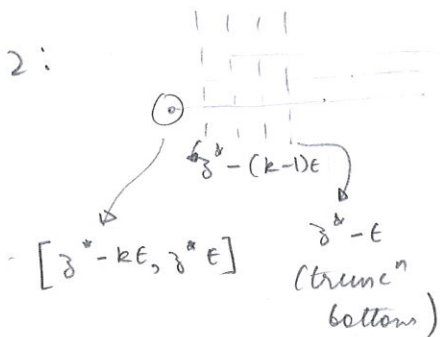 2:
z* - (k-1)ϵ
[z* - kϵ, z* ϵ]
z* - ϵ
(truncⁿ
bottom)